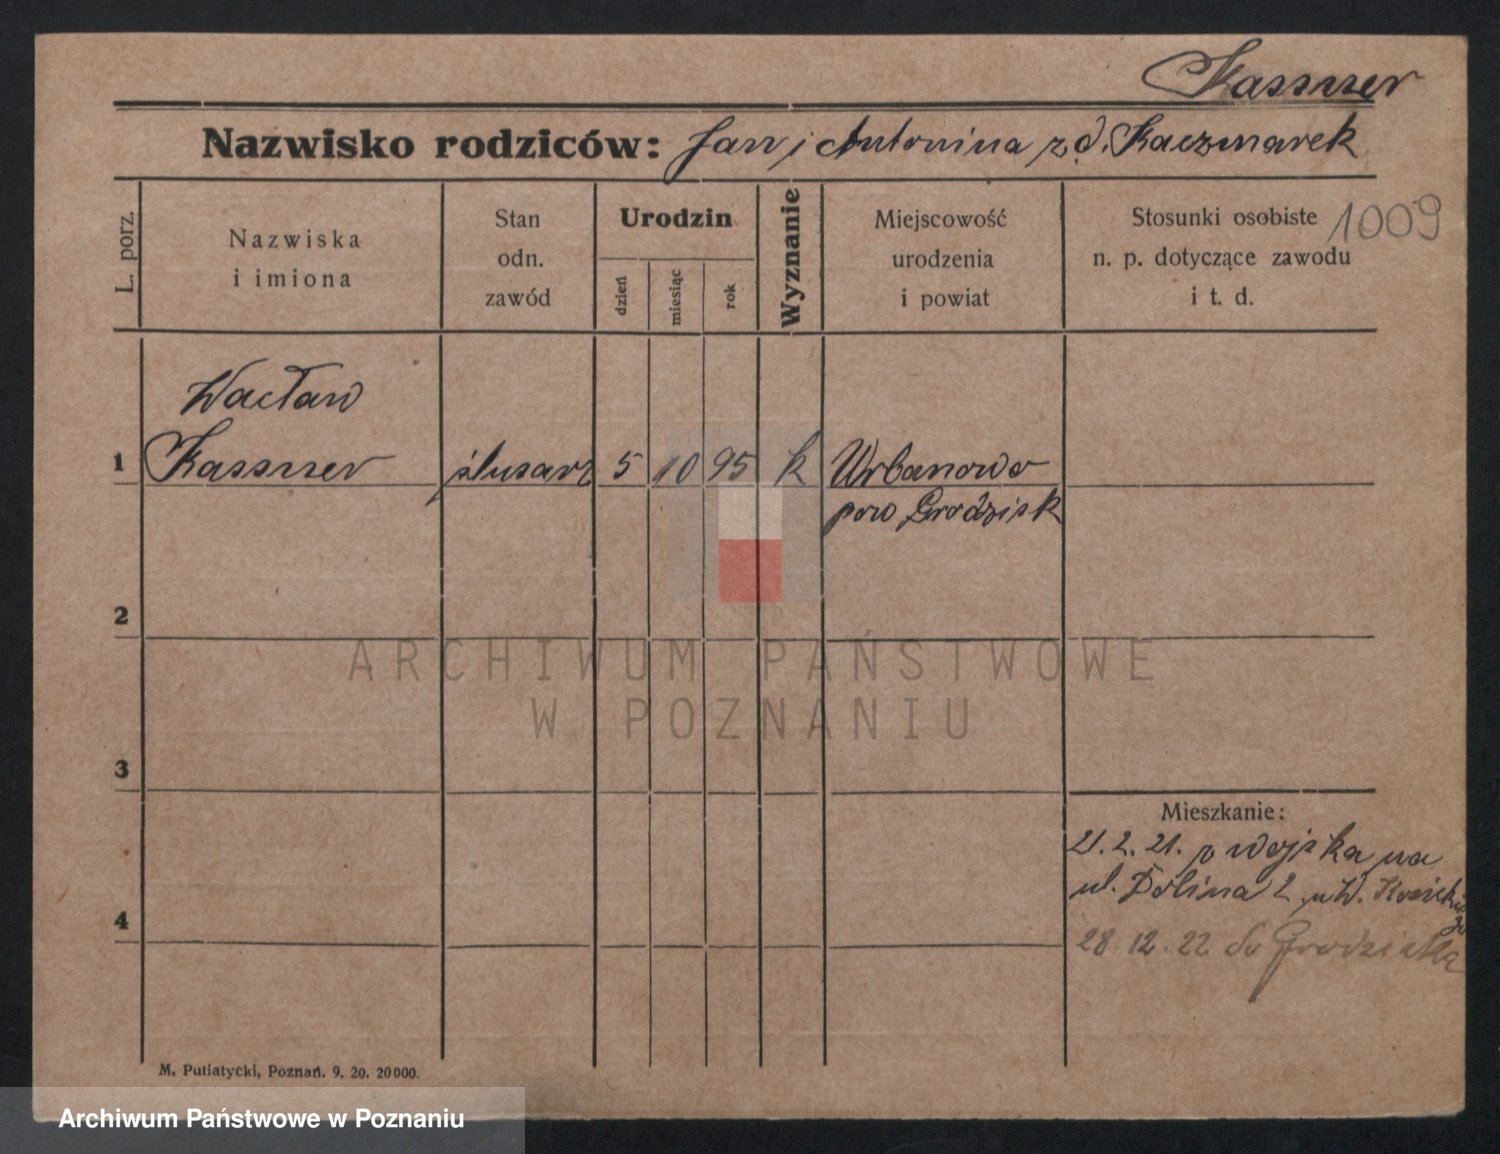 Kassner
Nazwisko rodziców: Jan i Antonina z d. Kaczmarek
L. porz.
Nazwiska
i imiona
Stan
odn.
zawód
Urodzin
dzień
miesiąc
rok
Wyznanie
Miejscowość
urodzenia
i powiat
Stosunki osobiste
n. p. dotyczące zawodu
i t. d.
1009
Wacław
1 Kassner ślusarz 5 10 95 k Urbanowo
pow Grodzisk
2
ARCHIWUM PAŃSTWOWE
W POZNANIU
3
Mieszkanie:
21.2.21. z wojska na
ul. Dolina 2 u W.
4
28.12.22 do Grodziska
M. Putiatycki, Poznań. 9. 20. 20000.
Archiwum Państwowe w Poznaniu